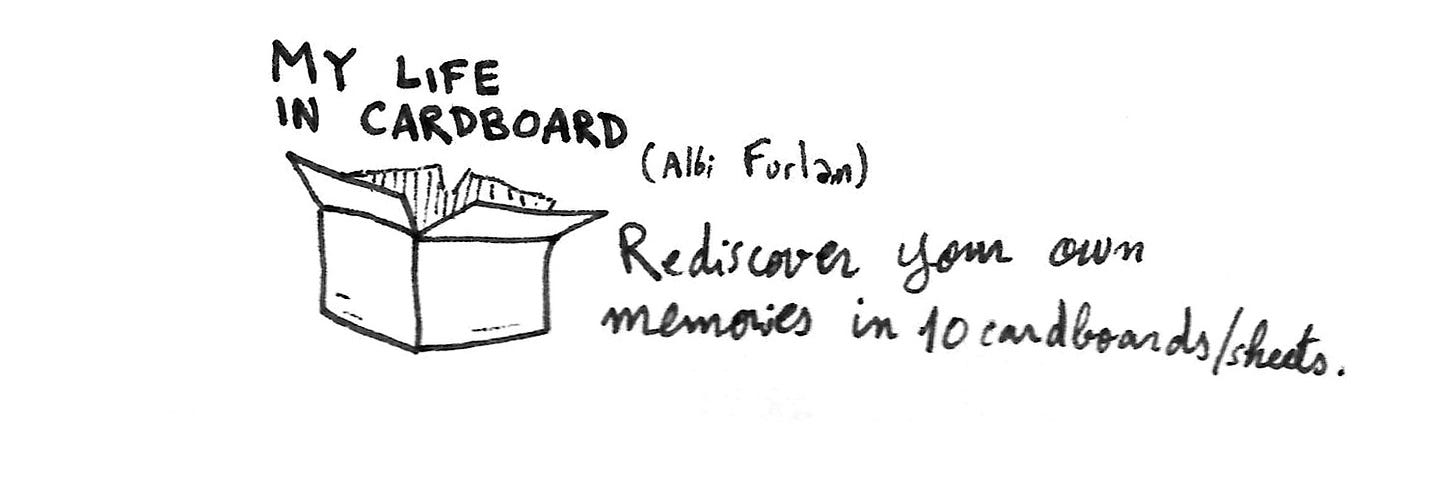 MY LIFE
IN CARDBOARD
(Albi Furlan)
Rediscover your own
memories in 10 cardboards/sheets.